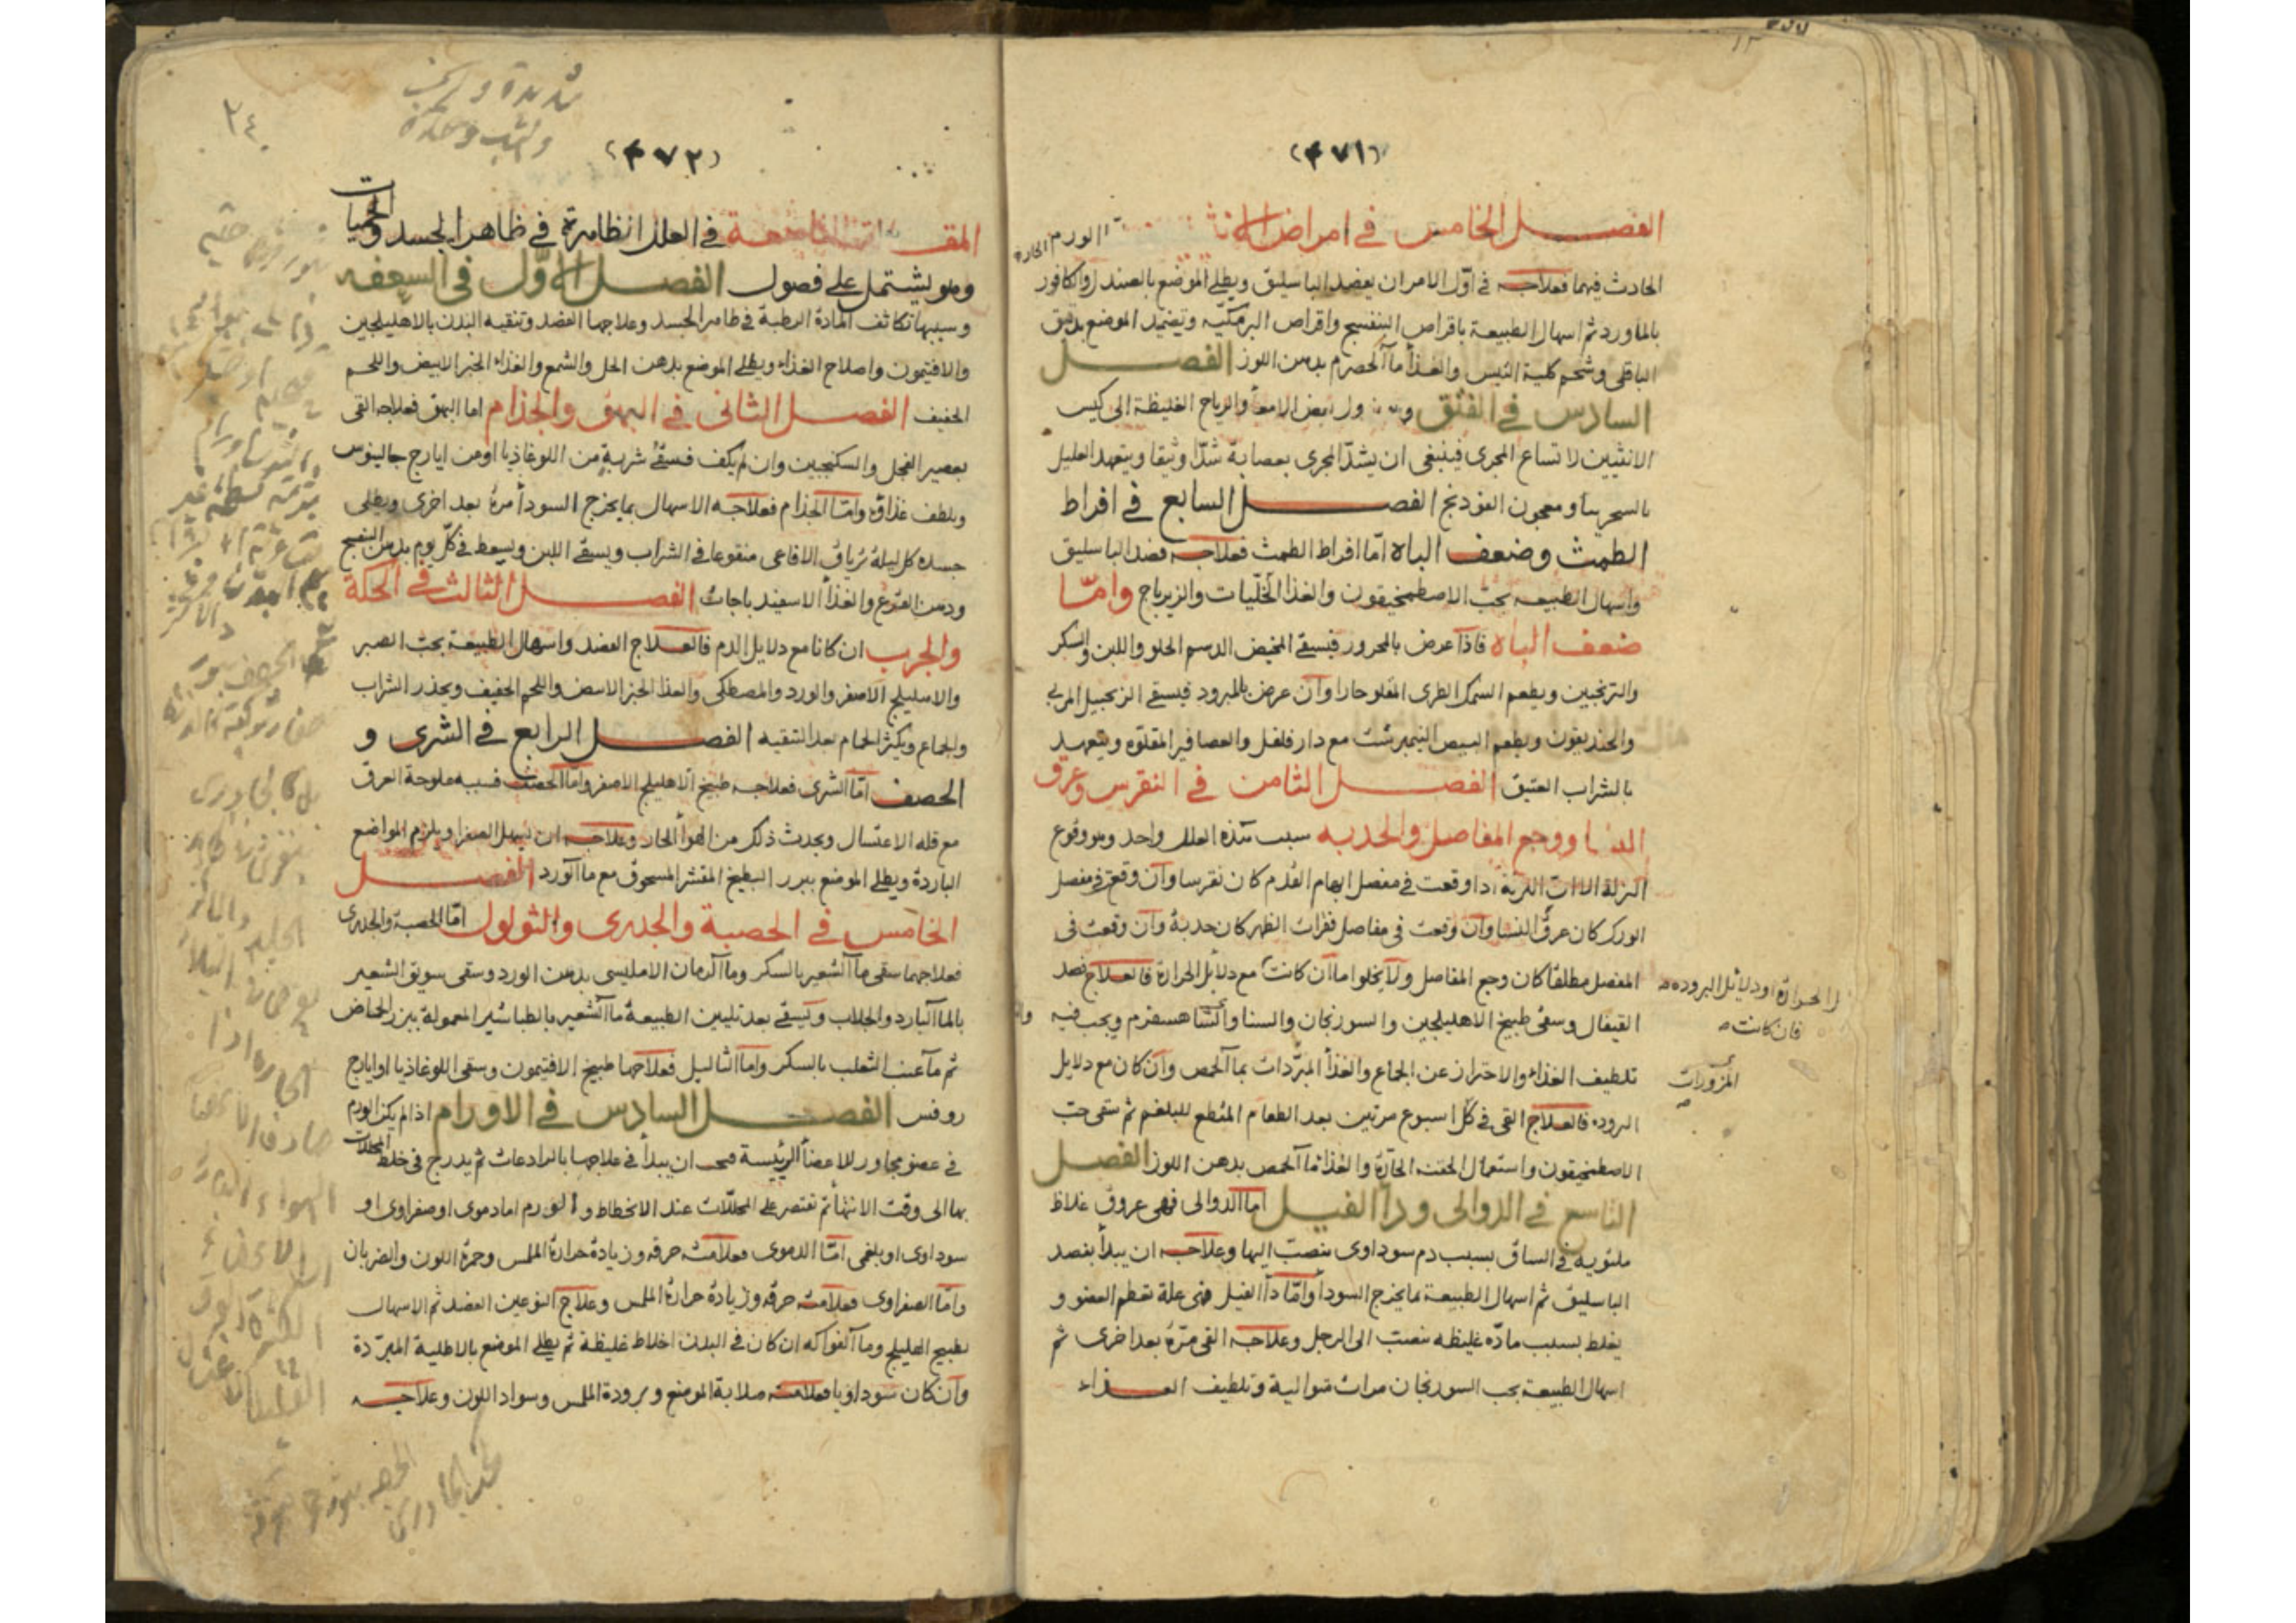 (٤٧١)
الفصل الخامس في امراض الانثيين اما الورم الحار
الحادث فيهما فعلاجه في اوّل الامر ان يفصد الباسليق ويطلى الموضع بالصندل والكافور
بالماورد ثم اسهال الطبيعة باقراص البنفسج واقراص البرمكيّه وتضميد الموضع بدقيق
الباقلى وشحم كلية التيس والغذأ مآ الحصرم بدهن اللوز الفصل
السادس في الفتق نزول بعض الامعأ والرياح الغليظة الى كيس
الانثيين لاتساع المجرى فينبغى ان يشدّ المجرى بعصابة شدّا وثيقا ويتعهد العليل
بالسجرينا ومعجون الفودنج الفصل السابع في افراط
الطمث وضعف الباه امّا افراط الطمث فعلاجه فصد الباسليق
واسهال الطبيعه بحبّ الاصطمخيقون والغذا الخلّيات والزيرباج وامّا
ضعف الباه فاذا عرض بالمحرور فيسقى المخيض الدسم الحلو واللبن والسكر
والترنجبين ويطعم السمك الطرى المقلو حارا وان عرض بالمبرود فيسقى الزنجبيل المربى
والحنديقون ويطعم البيض النيمبرشت مع دار فلفل والعصافير المقلوه ويتعهد
بالشراب العتيق الفصل الثامن في النقرس وعرق
النسا ووجع المفاصل والحدبه سبب هذه العلل واحد وهو وقوع
النزلة الا ان النزلة اذا وقعت في مفصل ابهام القدم كان نقرسا وان وقعت في مفصل
الورك كان عرق النسا وان وقعت في مفاصل فقرات الظهر كان حدبة وان وقعت فى
المفصل مطلقا كان وجع المفاصل ولا يخلوا اما ان كانت مع دلائل الحرارة فالعلاج فصد
القيفال وسقى طبيخ الاهليلجين والسورنجان والسنا والشاهسفرم ويجب فيه
تلطيف الغذاء والاحتراز عن الجماع والغذأ المبرّدات بمآ الحمص وان كان مع دلايل
البروده فالعلاج القى في كلّ اسبوع مرتين بعد الطعام المقطع للبلغم ثم سقى حبّ
الاصطمخيقون واستعمال الحقنه الحارّة والغذا مآ الحمص بدهن اللوز الفصل
التاسع في الدوالى ودآ الفيل اما الدوالى فهى عروق غلاظ
ملتويه في الساق بسبب دم سوداوى ينصبّ اليها وعلاجه ان يبدأ بفصد
الباسليق ثم اسهال الطبيعة بما يخرج السودأ وامّا دآ الفيل فهى علة تعظم العضو و
يغلظ بسبب مادّه غليظه تنصبّ الى الرجل وعلاجه القى مرّة بعد اخرى ثم
اسهال الطبيعة بحب السورنجان مرات متوالية وتلطيف الغذاء
الحرارة او دلائل البروده
فان كانت
المزورات
(٤٧٢)
المقالة التاسعة في العلل الظاهرة في ظاهر الجسد والحميات
وهو يشتمل على فصول الفصل الاوّل في السعفه
وسببها تكاثف المادة الرطبة في ظاهر الجسد وعلاجها الفصد وتنقيه البدن بالاهليلجين
والافتيمون واصلاح الغذاء ويطلى الموضع بدهن الخل والشمع والغذاء الخبز الابيض واللحم
الخفيف الفصل الثانى في البهق والجذام اما البهق فعلاجه القى
بعصير الفجل والسكنجبين وان لم يكف فسقى شربة من اللوغاذيا او من ايارج جالينوس
ويلطف غذاؤه وامّا الجذام فعلاجه الاسهال بما يخرج السودأ مرة بعد اخرى ويطلى
جسده كل ليلة ترياق الافاعى منقوعا في الشراب ويسقى اللبن ويسعط في كلّ يوم بدهن البنفسج
ودهن القرع والغذأ الاسفيدباجات الفصل الثالث في الحكة
والجرب ان كانا مع دلايل الدم فالعلاج الفصد واسهال الطبيعة بحبّ الصبر
والاهليلج الاصفر والورد والمصطكى والغذا الخبز الابيض واللحم الخفيف ويحذر الشراب
والجماع ويكثر الحمام بعد التنقيه الفصل الرابع في الشرى و
الحصف امّا الشرى فعلاجه طبيخ الاهليلج الاصفر وامّا الحصف فسببه ملوحة العرق
مع قله الاغتسال ويحدث ذلك من الهوأ الحار وعلاجه ان يسهل الصفرا ويلزم المواضع
الباردة ويطلى الموضع ببزر البطيخ المقشر المسحوق مع مآ الورد الفصل
الخامس في الحصبة والجدرى والثولول امّا الحصبة والجدرى
فعلاجهما سقى مآ الشعير بالسكر ومآ الرمان الامليسى بدهن الورد وسقى سويق الشعير
بالمآ البارد والجلاب ويسقى بعد تليين الطبيعة مآ الشعير بالطباشير المعمولة ببزر الحماض
ثم مآ عنب الثعلب بالسكر وامّا الثاليل فعلاجها طبيخ الافتيمون وسقى اللوغاذيا او ايارج
روفس الفصل السادس في الاورام اذا لم يكن الورم
في عضو مجاور للاعضأ الرئيسة فيجب ان يبدأ في علاجها بالرادعات ثم يدرج في خلط المحللات
بها الى وقت الانتهأ ثم تقتصر على المحللّات عند الانحطاط والورم اما دموى او صفراوى او
سوداوى او بلغمى امّا الدموى فعلامته حرقه وزيادة حرارة الملمس وحمرة اللون والضربان
وامّا الصفراوى فعلامته حرقه وزيادة حرارة الملمس وعلاج النوعين الفصد ثم الاسهال
بطبيخ الهليلج ومآ الفواكه ان كان في البدن اخلاط غليظة ثم يطلى الموضع بالاطلية المبرّدة
وان كان سوداويا فعلامته صلابة الموضع وبرودة الملمس وسواد اللون وعلاجه